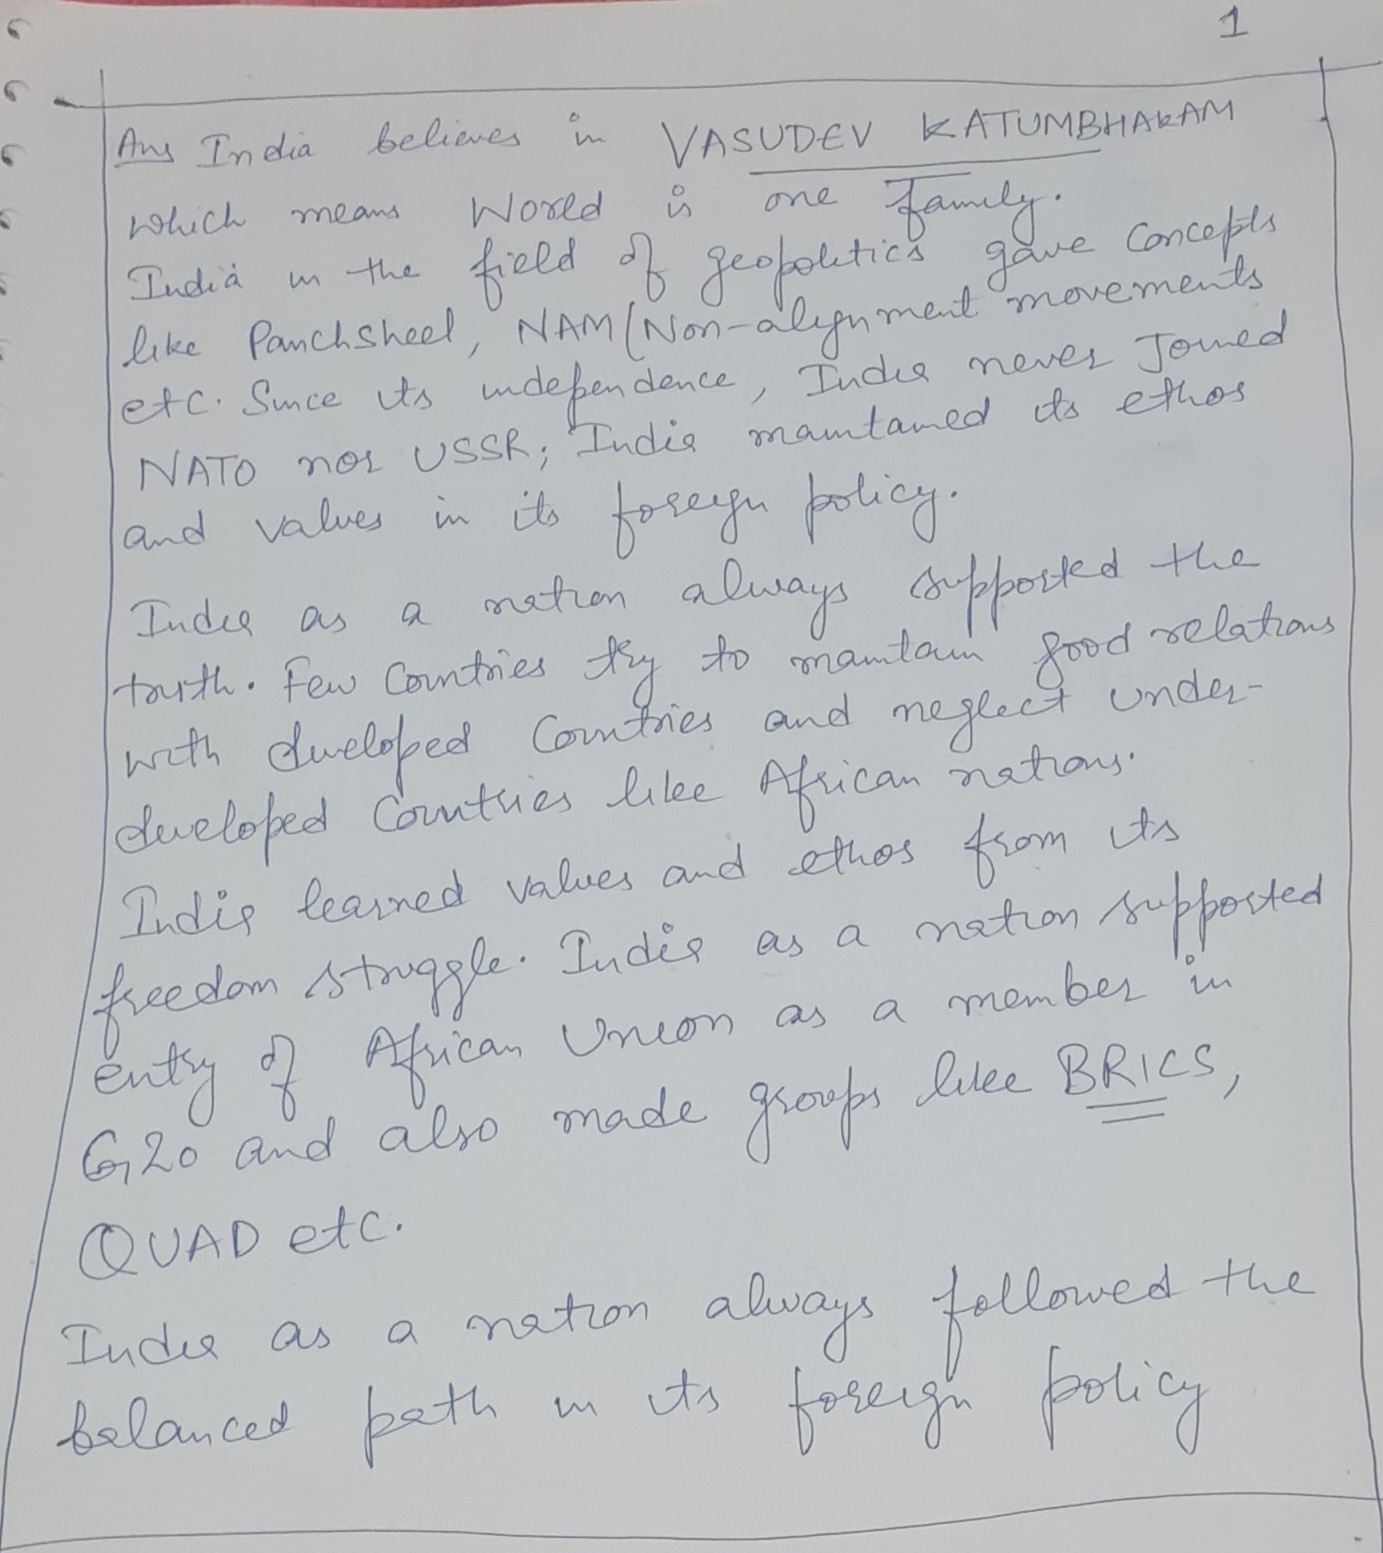 1
Ans India believes in VASUDEV KATUMBHAKAM
which means World is one family.
India in the field of geopolitics gave concepts
like Panchsheel, NAM (Non-alignment movements
etc. Since its independence, India never Joined
NATO nor USSR; India maintained its ethos
and values in its foreign policy.
India as a nation always supported the
truth. Few Countries try to maintain good relations
with developed Countries and neglect under-
developed Countries like African nations.
India learned values and ethos from its
freedom struggle. India as a nation supported
entry of African Union as a member in
G20 and also made groups like BRICS,
QUAD etc.
India as a nation always followed the
balanced path in its foreign policy